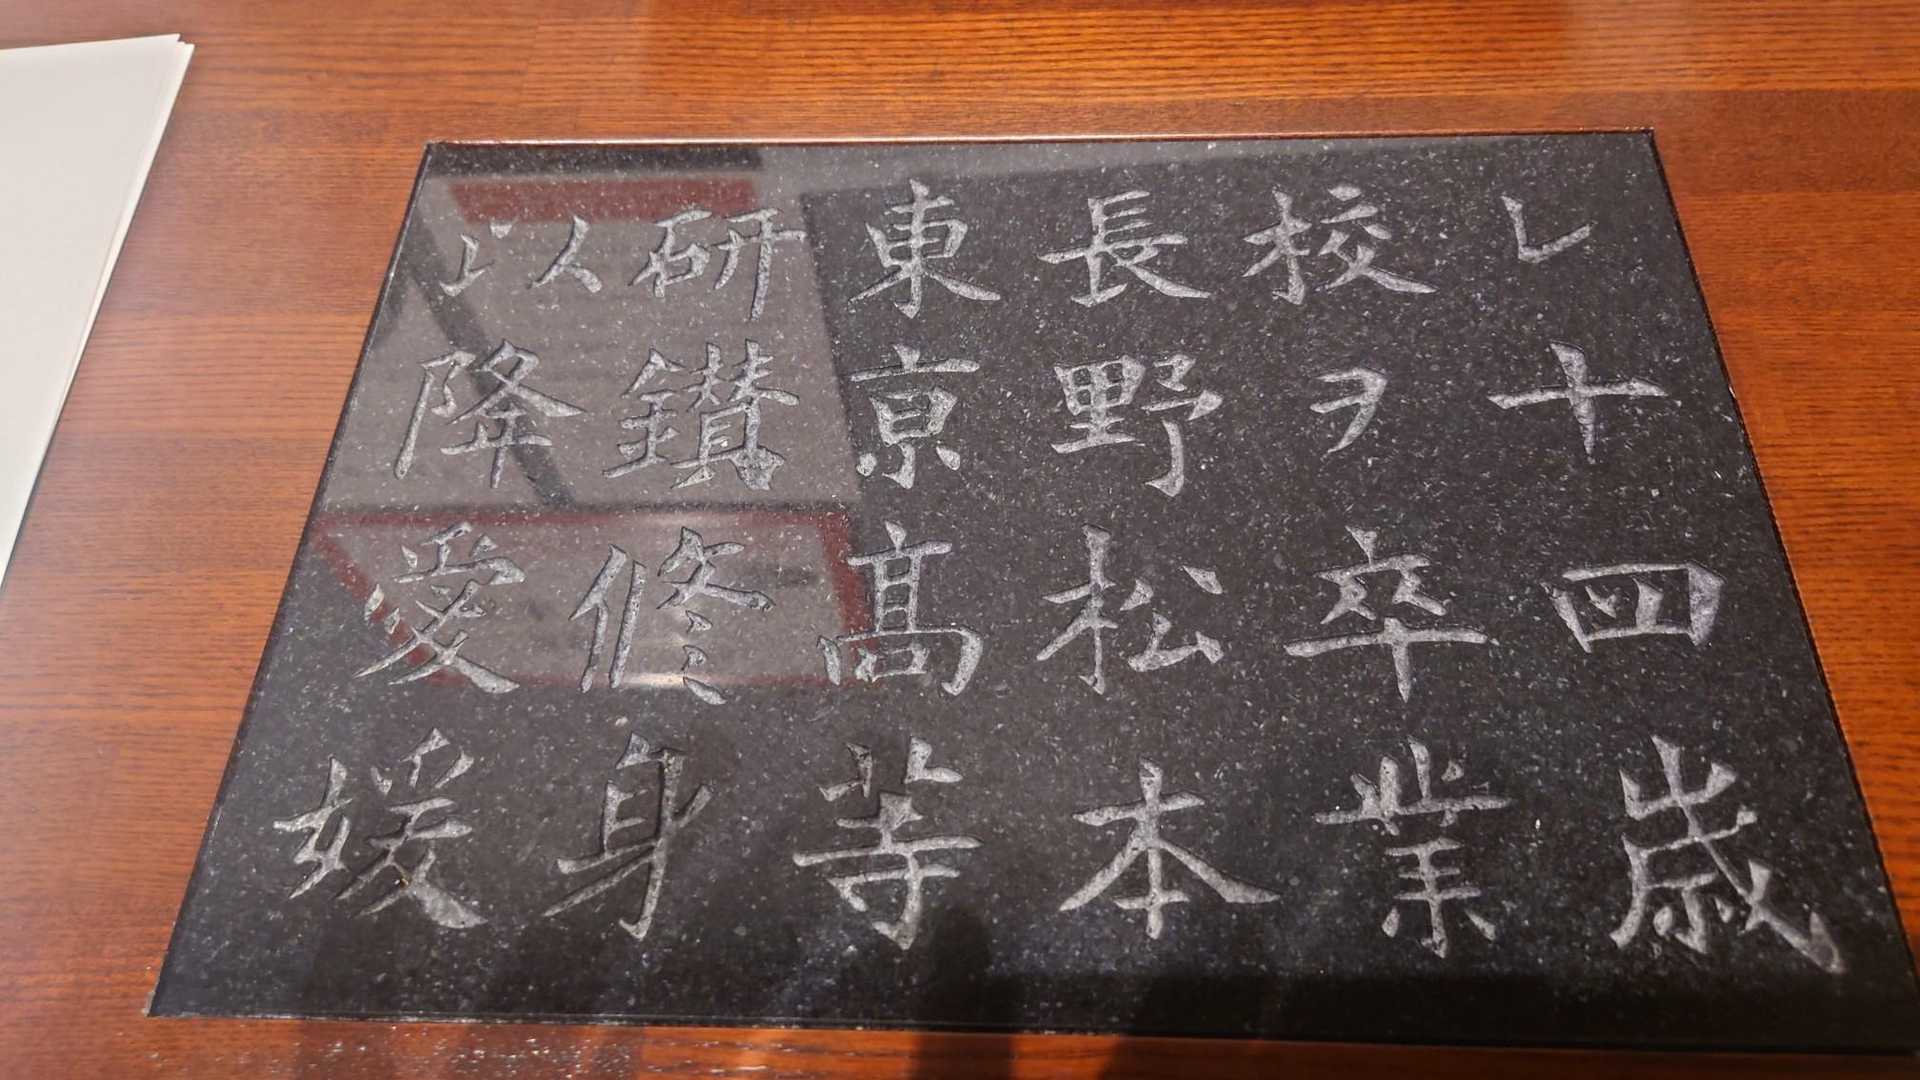 レ十四歳
校ヲ卒業
長野松本
東亰髙等
研鑚修身
以降愛媛